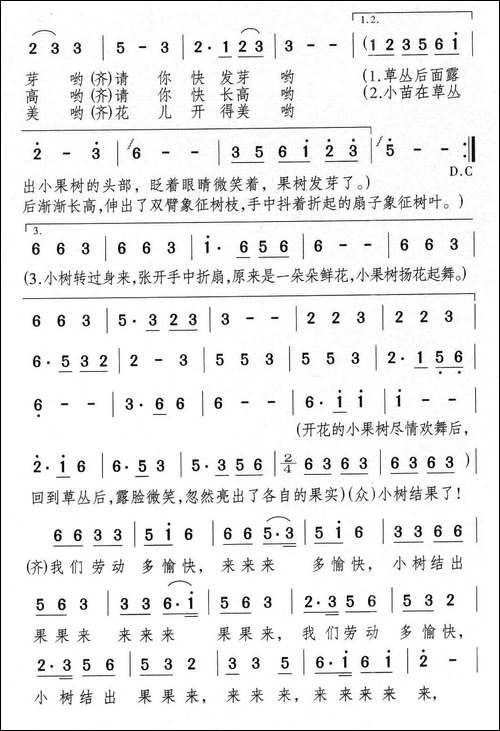 1.2.
2 3 3 | 5 - 3 | 2· 1 2 3 | 3 - - | (1 2 3 5 6 i
芽 哟 (齐)请 你 快 发 芽 哟 (1.草丛后面露
高 哟 (齐)请 你 快 长 高 哟 (2.小苗在草丛
美 哟 (齐)花 儿 开 得 美 哟
2 - 3 | 6 - - | 3 5 6 i 2 3 | 5 - - :|
D.C
出小果树的头部，眨着眼睛微笑着，果树发芽了。)
后渐渐长高，伸出了双臂象征树枝，手中抖着折起的扇子象征树叶。)
3.
6 6 3 | 6 6 3 | i· 6 5 6 | 6 - - | 6 6 3 |
(3.小树转过身来，张开手中折扇，原来是一朵朵鲜花，小果树扬花起舞。)
6 6 3 | 5· 3 2 3 | 3 - - | 2 2 3 | 2 2 3 |
6· 5 3 2 | 2 - 3 | 5 5 3 | 5 5 3 | 2· 1 5 6 |
6 - - | 3· 6 6 | 6 - - | 6· i i | i - - |
(开花的小果树尽情欢舞后，
2· i 6 | 6· 5 3 | 5· 3 5 6 | 2/4 6 3 6 3 | 6 3 6 3 ) |
回到草丛后，露脸微笑，忽然亮出了各自的果实)(众)小树结果了！
6 6 3 3 | 5 i 6 | 6 6 5· 3 | 5 i 6 | 6 6 3 3 |
(齐)我们劳动 多愉快， 来来来 多愉快， 小树结出
5 6 3 | 3 3 6· i | 5 6 3 | 2· 3 5 6 | 5 3 2 |
果果来 来来来 果果来， 我们劳动 多愉快，
2· 3 5 6 | 5 3 2 | 3 3 5 | 6· i 6 i | 2 - |
小树结出 果果来， 来来来， 来来来来 来，